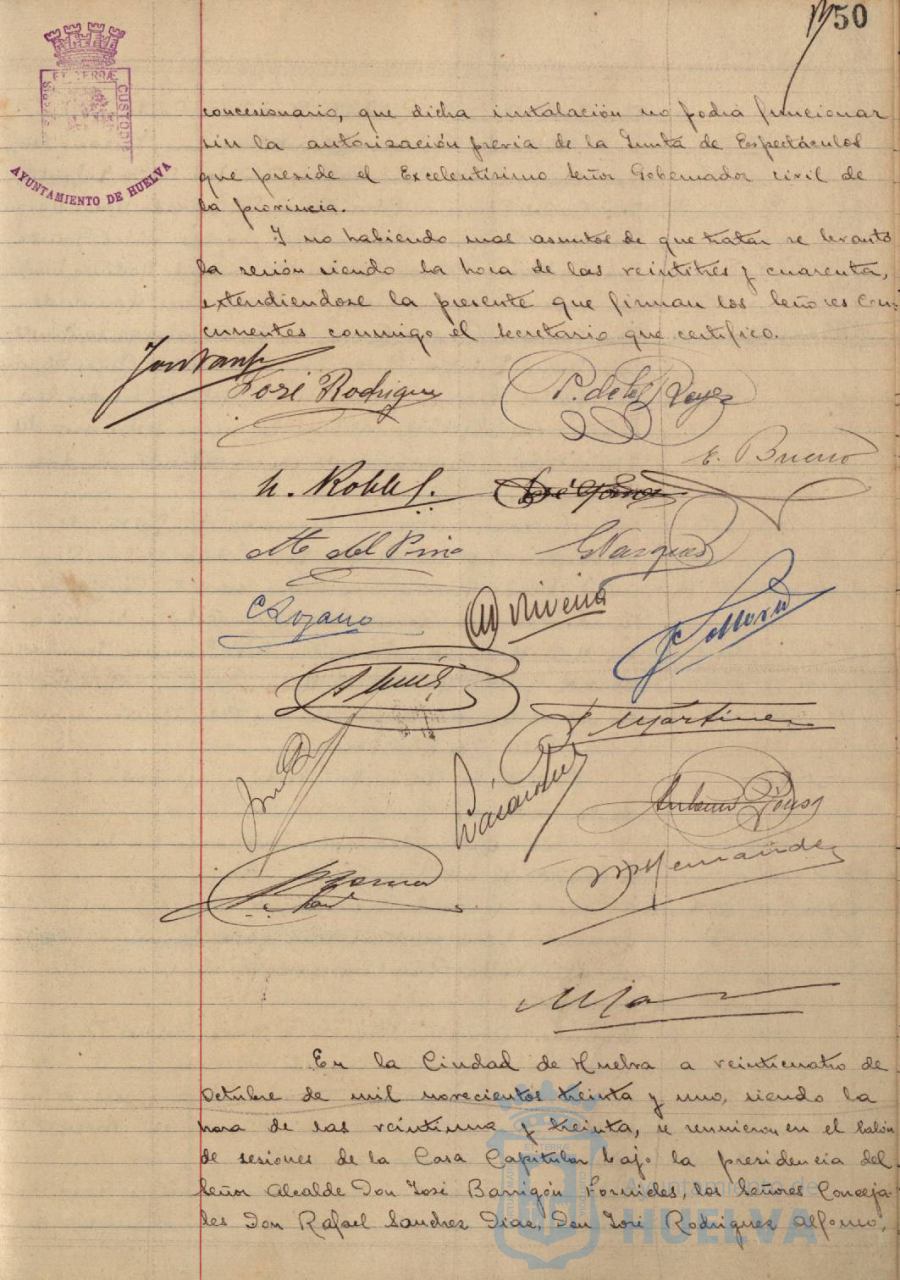 50
PORTUS MARIS ET TERRÆ CUSTODIA
AYUNTAMIENTO DE HUELVA
concesionario, que dicha instalación no podrá funcionar
sin la autorización previa de la Junta de Espectáculos
que preside el Excelentísimo Señor Gobernador civil de
la provincia.
Y no habiendo mas asuntos de que tratar se levantó
la sesión siendo la hora de las veintitrés y cuarenta,
extendiendose la presente que firman los Señores Con-
currentes conmigo el Secretario que certifico.
José Rodriguez P. de los Reyes
E. Bueno
M. del Pino E Vazquez
C Lozano
Martinez
Antonio Pousa
Hernandez
En la Ciudad de Huelva a veinticuatro de
Octubre de mil novecientos treinta y uno, siendo la
hora de las veintiuna y treinta, se reunieron en el Salón
de sesiones de la Casa Capitular bajo la presidencia del
Señor Alcalde Don José Barrigón Fornieles, los Señores Conceja-
les Don Rafael Sanchez Diaz, Don José Rodriguez Alfonso,
Ayuntamiento de
HUELVA